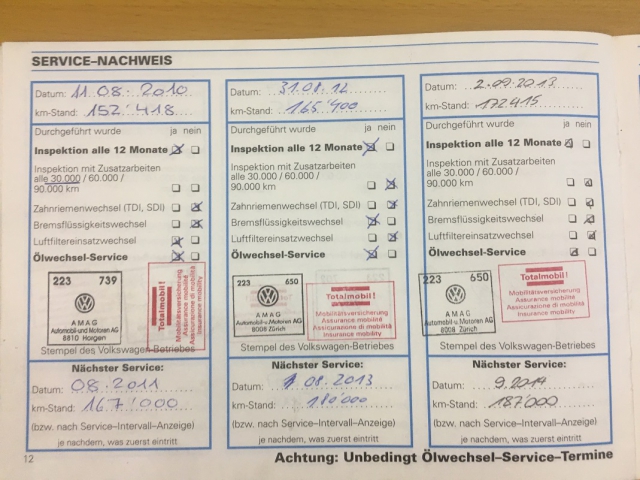 SERVICE–NACHWEIS
Datum: 11.08.2010
km-Stand: 152'418
Durchgeführt wurde ja nein
Inspektion alle 12 Monate
Inspektion mit Zusatzarbeiten
alle 30.000 / 60.000 /
90.000 km
Zahnriemenwechsel (TDI, SDI)
Bremsflüssigkeitswechsel
Luftfiltereinsatzwechsel
Ölwechsel-Service
223 739
AMAG
Automobil-und Motoren AG
8810 Horgen
Totalmobil!
Mobilitätsversicherung
Assurance mobilité
Assicurazione di mobilità
Insurance mobility
Stempel des Volkswagen-Betriebes
Nächster Service:
Datum: 08.2011
km-Stand: 167'000
(bzw. nach Service–Intervall–Anzeige)
je nachdem, was zuerst eintritt
Datum: 31.08.12
km-Stand: 165'400
Durchgeführt wurde ja nein
Inspektion alle 12 Monate
Inspektion mit Zusatzarbeiten
alle 30.000 / 60.000 /
90.000 km
Zahnriemenwechsel (TDI, SDI)
Bremsflüssigkeitswechsel
Luftfiltereinsatzwechsel
Ölwechsel-Service
223 650
AMAG
Automobil-u.Motoren AG
8008 Zürich
Totalmobil!
Mobilitätsversicherung
Assurance mobilité
Assicurazione di mobilità
Insurance mobility
Stempel des Volkswagen-Betriebes
Nächster Service:
Datum: 08.2013
km-Stand: 180'000
(bzw. nach Service–Intervall–Anzeige)
je nachdem, was zuerst eintritt
Datum: 2.09.2013
km-Stand: 172415
Durchgeführt wurde ja nein
Inspektion alle 12 Monate
Inspektion mit Zusatzarbeiten
alle 30.000 / 60.000 /
90.000 km
Zahnriemenwechsel (TDI, SDI)
Bremsflüssigkeitswechsel
Luftfiltereinsatzwechsel
Ölwechsel-Service
223 650
AMAG
Automobil-u.Motoren AG
8008 Zürich
Totalmobil!
Mobilitätsversicherung
Assurance mobilité
Assicurazione di mobilità
Insurance mobility
Stempel des Volkswagen-Betriebes
Nächster Service:
Datum: 9.2014
km-Stand: 187'000
(bzw. nach Service–Intervall–Anzeige)
je nachdem, was zuerst eintritt
12
Achtung: Unbedingt Ölwechsel–Service–Termine